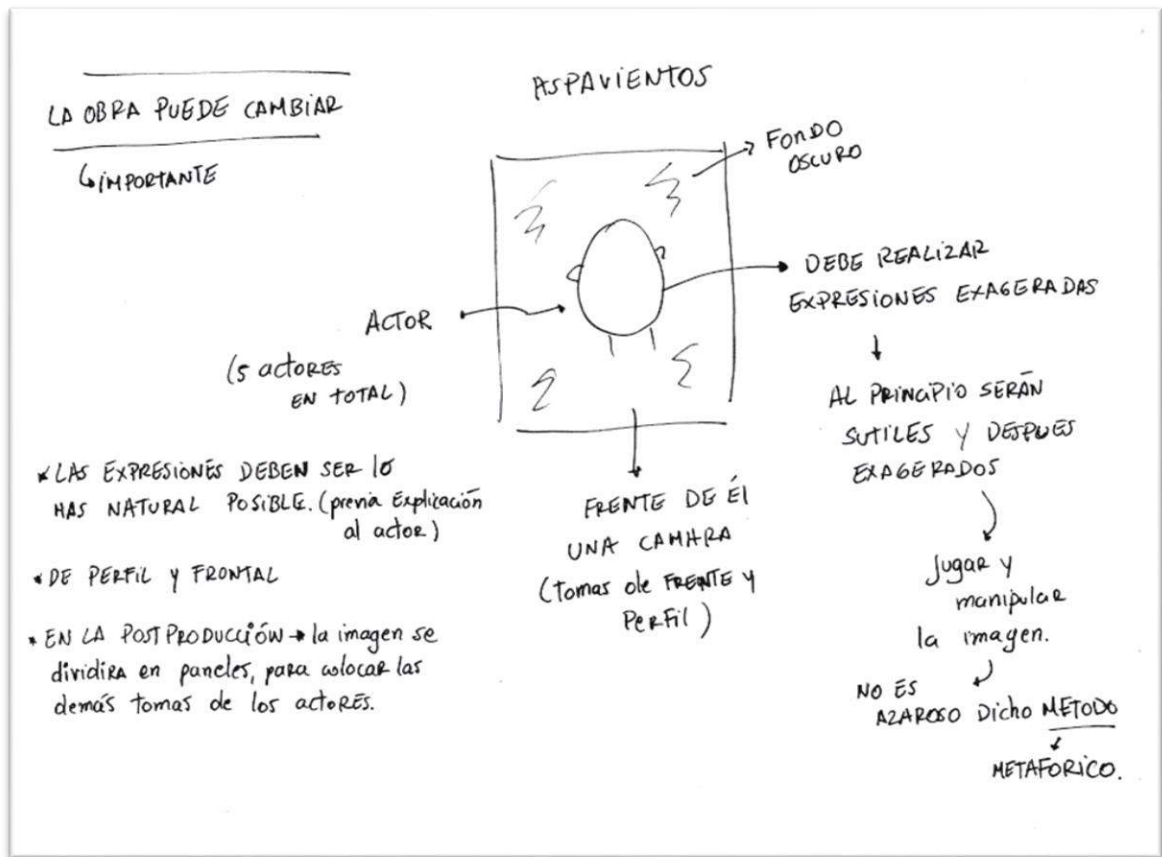 LA OBRA PUEDE CAMBIAR
IMPORTANTE
ASPAVIENTOS
FONDO
OSCURO
DEBE REALIZAR
EXPRESIONES EXAGERADAS
AL PRINCIPIO SERÁN
SUTILES Y DESPUES
EXAGERADOS
Jugar y
manipular
la imagen.
NO ES
AZAROSO Dicho METODO
METAFORICO.
ACTOR
(5 actores
EN TOTAL)
FRENTE DE ÉL
UNA CAMARA
(tomas de FRENTE Y
PERFIL)
* LAS EXPRESIONES DEBEN SER lo
MAS NATURAL POSIBLE. (previa Explicación
al actor)
* DE PERFIL Y FRONTAL
* EN LA POST PRODUCCIÓN → la imagen se
dividira en paneles, para colocar las
demás tomas de los actores.